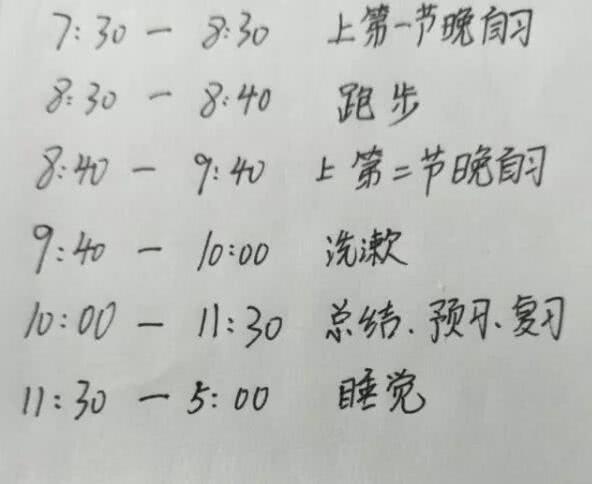 7:30 — 8:30 上第一节晚自习
8:30 — 8:40 跑步
8:40 — 9:40 上第二节晚自习
9:40 — 10:00 洗漱
10:00 — 11:30 总结、预习、复习
11:30 — 5:00 睡觉